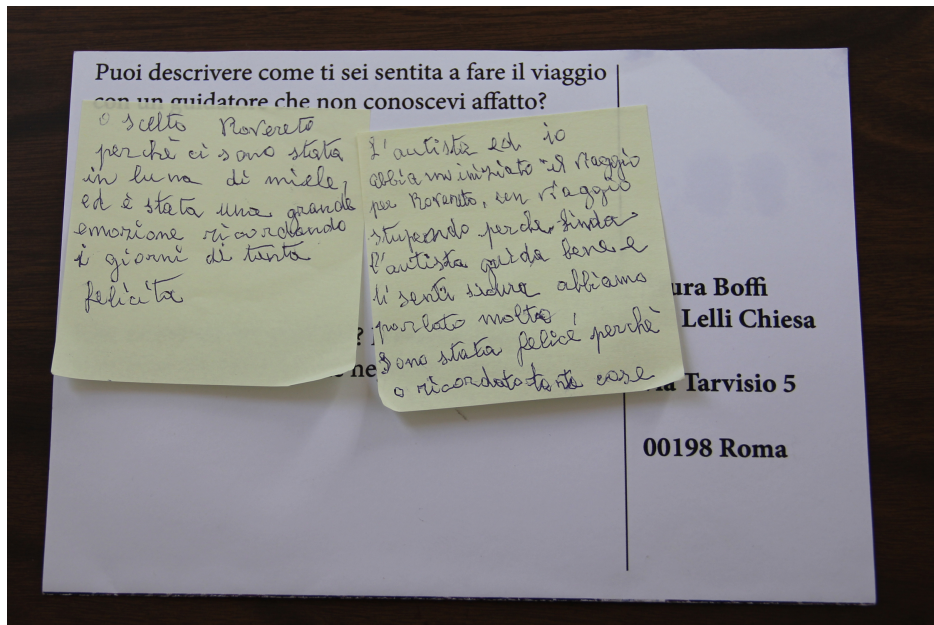 Puoi descrivere come ti sei sentita a fare il viaggio
con un guidatore che non conoscevi affatto?
o scelto Rovereto
perchè ci sono stata
in luna di miele,
ed è stata una grande
emozione ricordando
i giorni di tanta
felicità
L'autista ed io
abbiamo iniziato il viaggio
per Rovereto, un viaggio
stupendo perche
l'autista guida bene e
ti senti sicura abbiamo
parlato molto,
Sono stata felice perchè
o ricordato tante cose
?
ne
ura Boffi
Lelli Chiesa
Tarvisio 5
00198 Roma